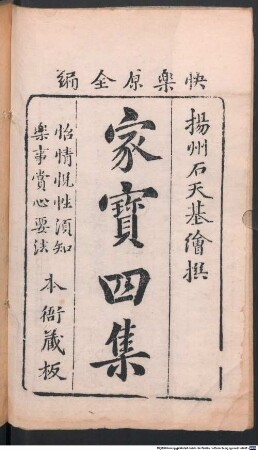 快樂原全編
揚州石天基繪撰
家寶四集
怡情悅性須知
樂事賞心要法
本衙藏板